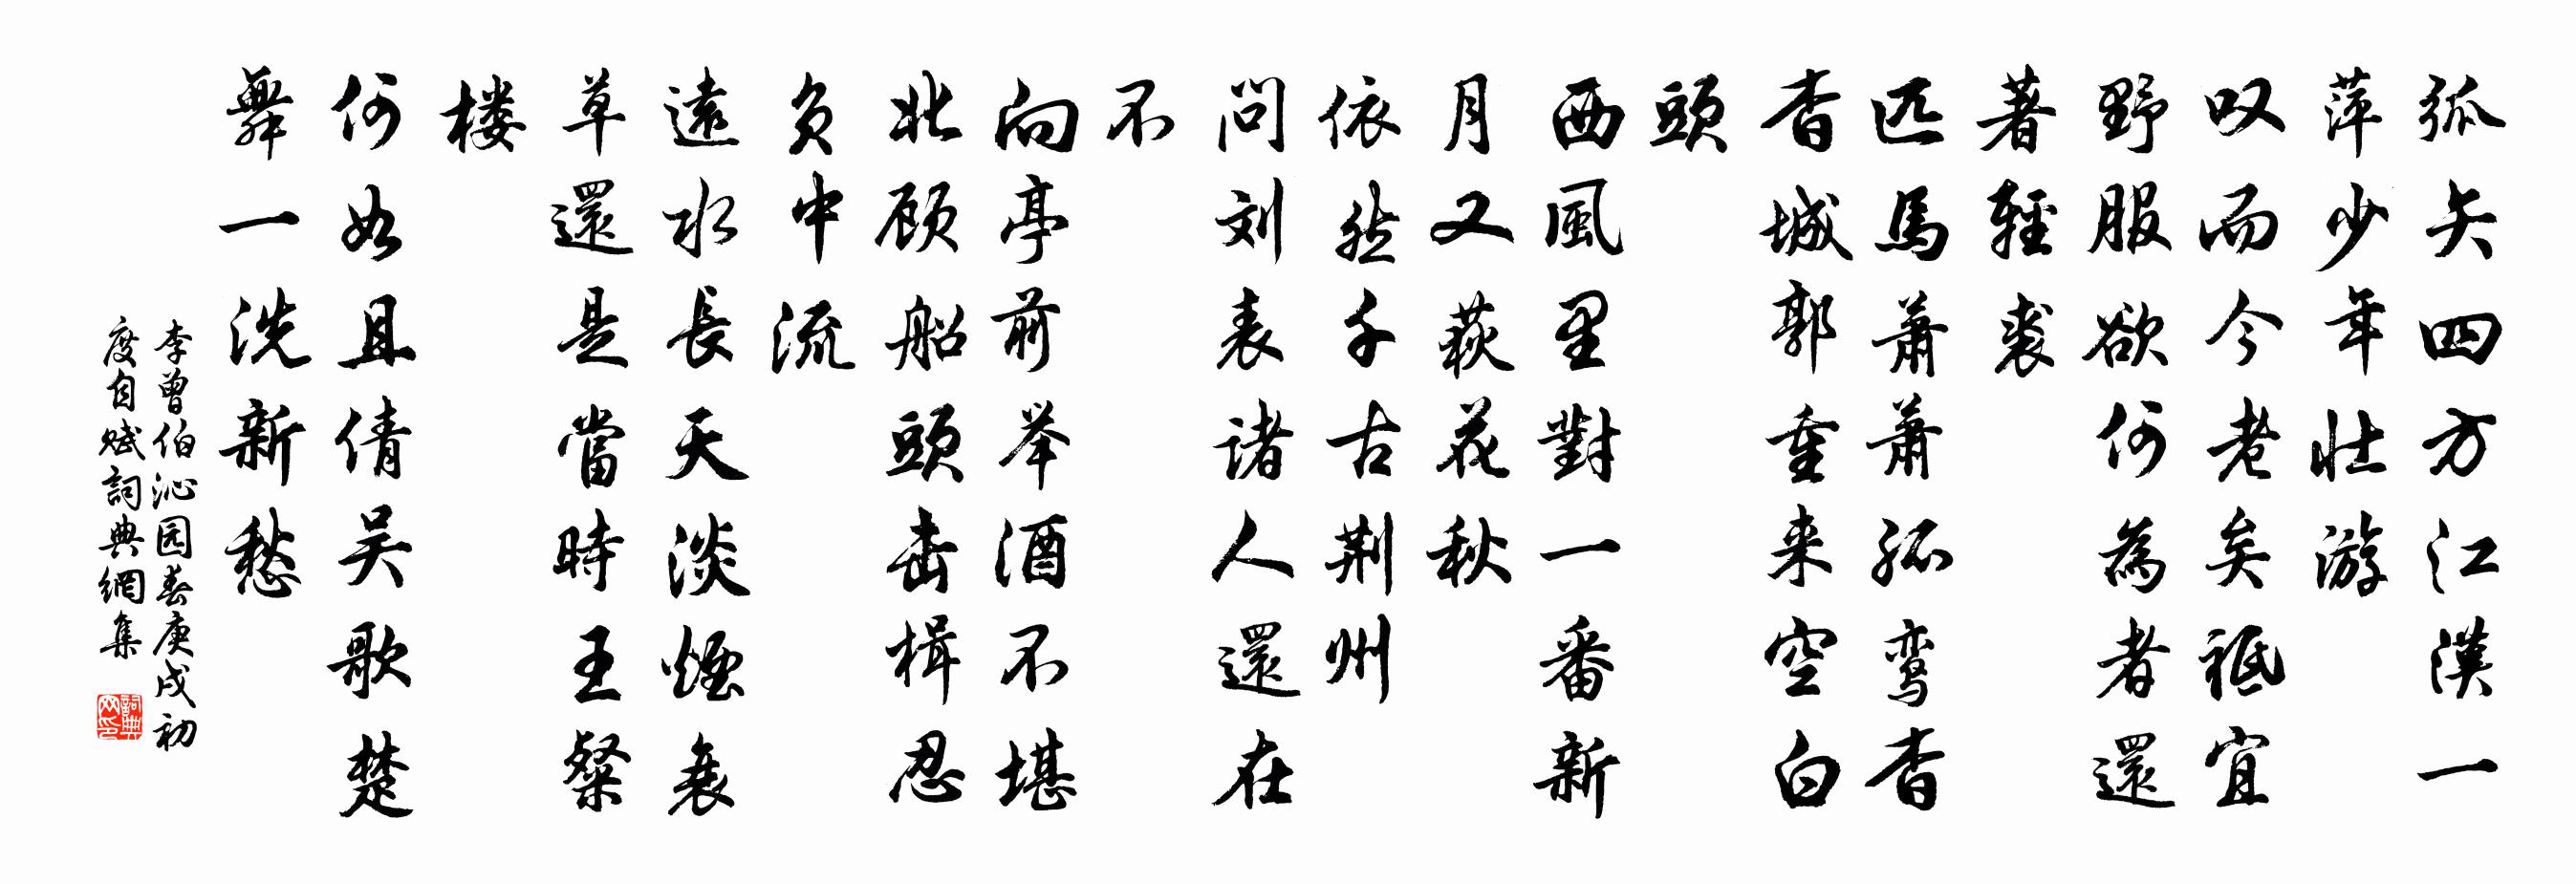 弧矢四方江漢一
萍少年壮游
叹而今老矣祗宜
野服欲何為者還
著輕裘
匹馬萧萧孤鸾杳
杳城郭重来空白
頭
西風里對一番新
月又荻花秋
依然千古荆州
问刘表诸人還在
不
向亭前举酒不堪
北顾船頭击楫忍
负中流
遠水長天淡煙衰
草還是當時王粲
楼
何如且倩吴歌楚
舞一洗新愁
李曾伯沁园春庚戌初
度自赋詞典網集
詞典网印